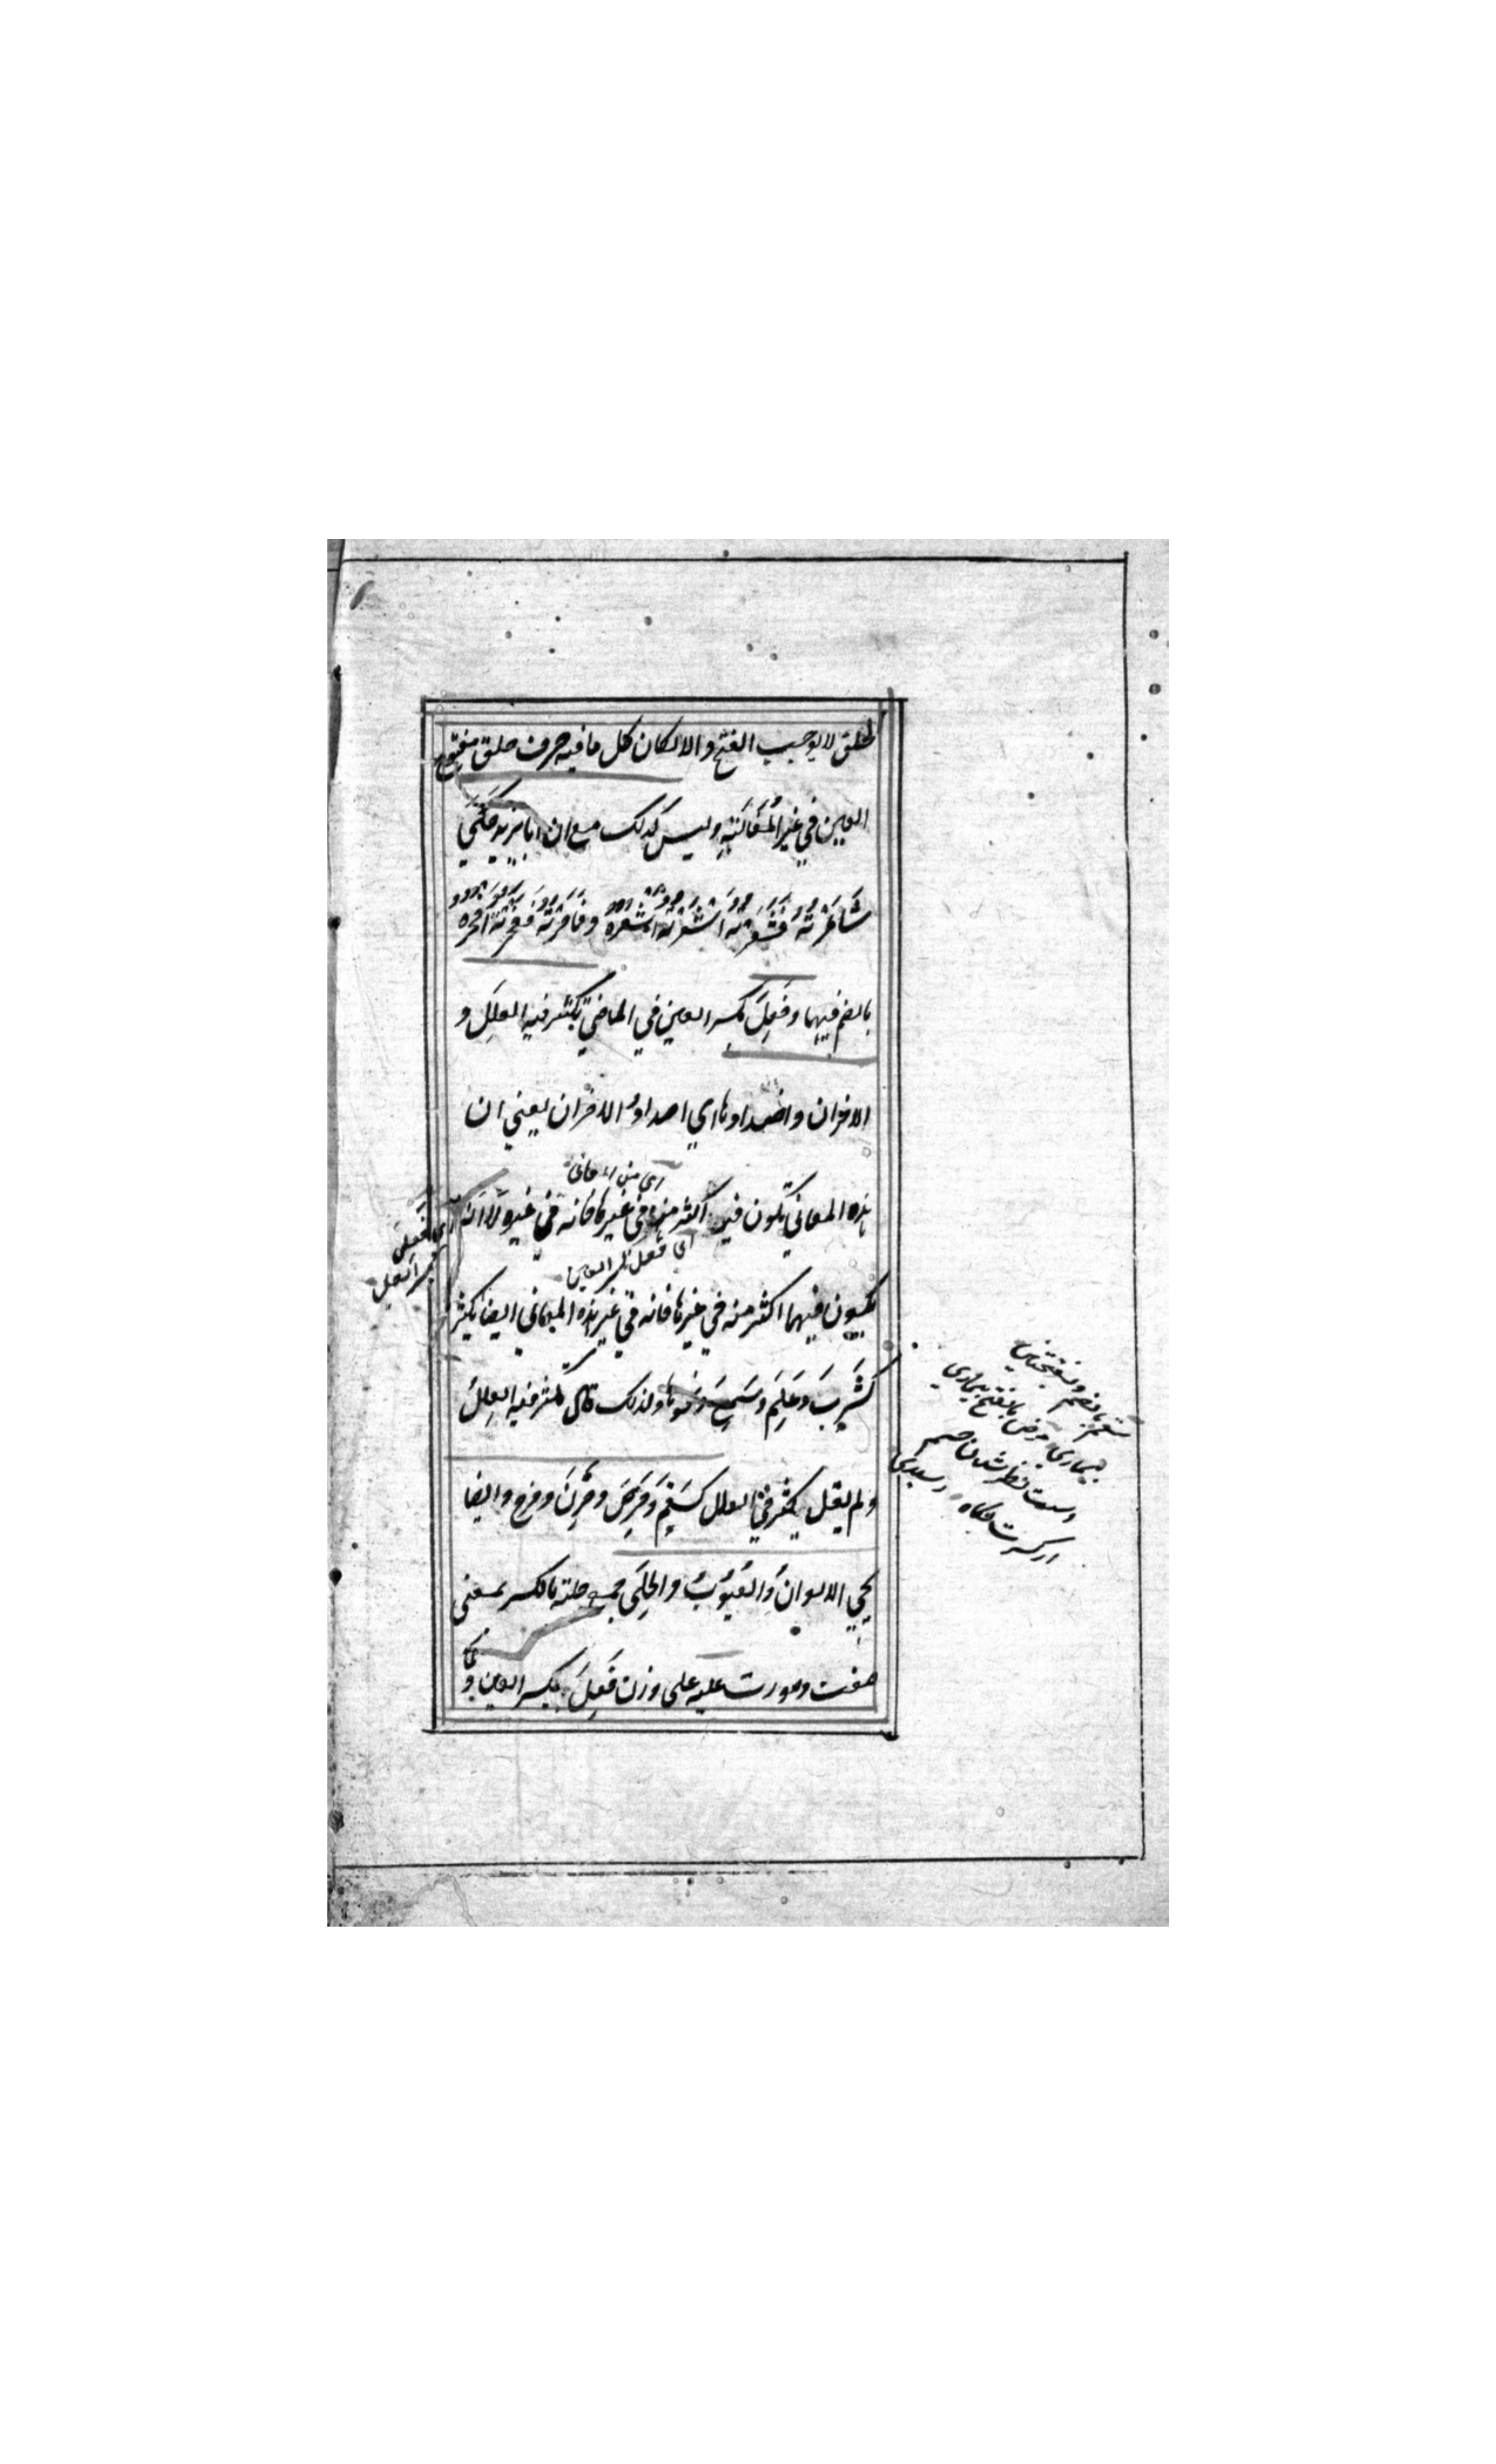 لحلق لا يوجب الفتح والا لكان كل ما فيه حرف حلق مفتوح
العين في غير المُغَالَبَةِ وليس كذلك مع ان ابا زيد حَكَي
شَاعَرْتُهُ فَشَعَرْتُهُ اَشْعُرُهُ وفَاخَرْتُهُ فَفَخَرْتُهُ اَفْخُرُهُ
بالضم فيهما وفَعِلَ بكسر العين في الماضي تكثر فيه العِلَل و
الاحزان واضدادها اي اضداد الاحزان يعني ان
اي من المعاني
هذه المعاني تكون فيه اكثر منه في غيرها فانه في غيره لا انه
اي فَعِلَ
بكسر العين
اي فعل بكسر العين
يكون فيها اكثر منه في غيرها فانه في غير هذه المعاني ايضا يكثر
كَشَرِبَ وعَلِمَ وسَمِعَ ونحوها ولذلك قال تكثر فيه العِلَلُ
ولم يقل يكثر في العلل كسَقِمَ ومَرِضَ وحَزِنَ وفرح وايضا
يجي الالوانُ والعُيُوبُ والحِلَى جمع حلية بالكسر بمعنى
صفت وصورت عليه على وزن فَعِلَ بكسر العين و
سقم بالضم وبفتحتين
بيماري مرض بالفتح بيماري